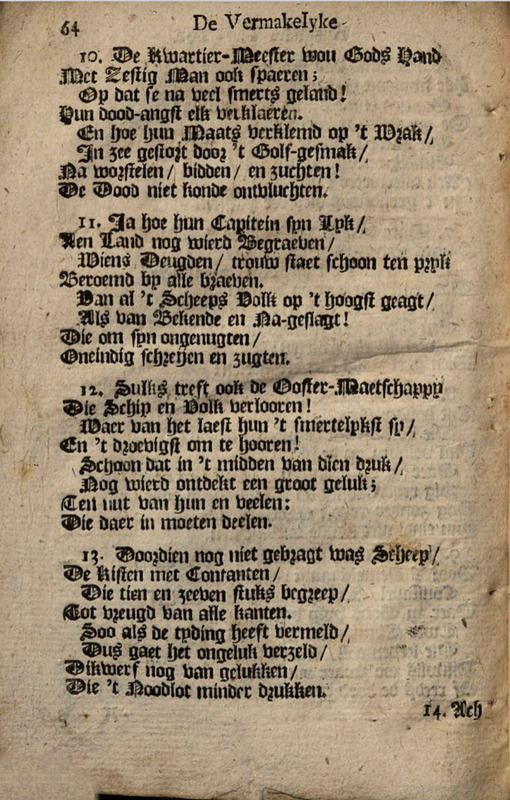 64 De Vermakelyke
10. De Kwartier-Meester wou Gods Hand
Met Zestig Man ook spaeren;
Op dat se na veel smerts geland!
Hun dood-angst elk verklaeren.
En hoe hun Maats verklemd op 't Wrak/
In zee gestort door 't Golf-gesmak/
Na worstelen/ bidden/ en zuchten!
De Dood niet konde ontvluchten.
11. Ja hoe hun Capitein syn Lyk/
Aen Land nog wierd Begraeven/
Wiens Deugden/ trouw staet schoon ten pryk
Beroemd by alle braeven.
Van al 't Scheeps Volk op 't hoogst geagt/
Als van Bekende en Na-geslagt!
Die om syn ongenugten/
Oneindig schreijen en zugten.
12. Sulks treft ook de Ooster-Maetschappy
Die Schip en Volk verlooren!
Waer van het laest hun 't smertelykst sy/
En 't droevigst om te hooren!
Schoon dat in 't midden van dien druk/
Nog wierd ontdekt een groot geluk;
Ten nut van hun en veelen:
Die daer in moeten deelen.
13. Doordien nog niet gebragt was Scheep/
De Kisten met Contanten/
Die tien en zeeven stuks begreep/
Tot vreugd van alle kanten.
Soo als de tyding heeft vermeld/
Dus gaet het ongeluk verzeld/
Dikwerf nog van gelukken/
Die 't Noodlot minder drukken.
14. Ach